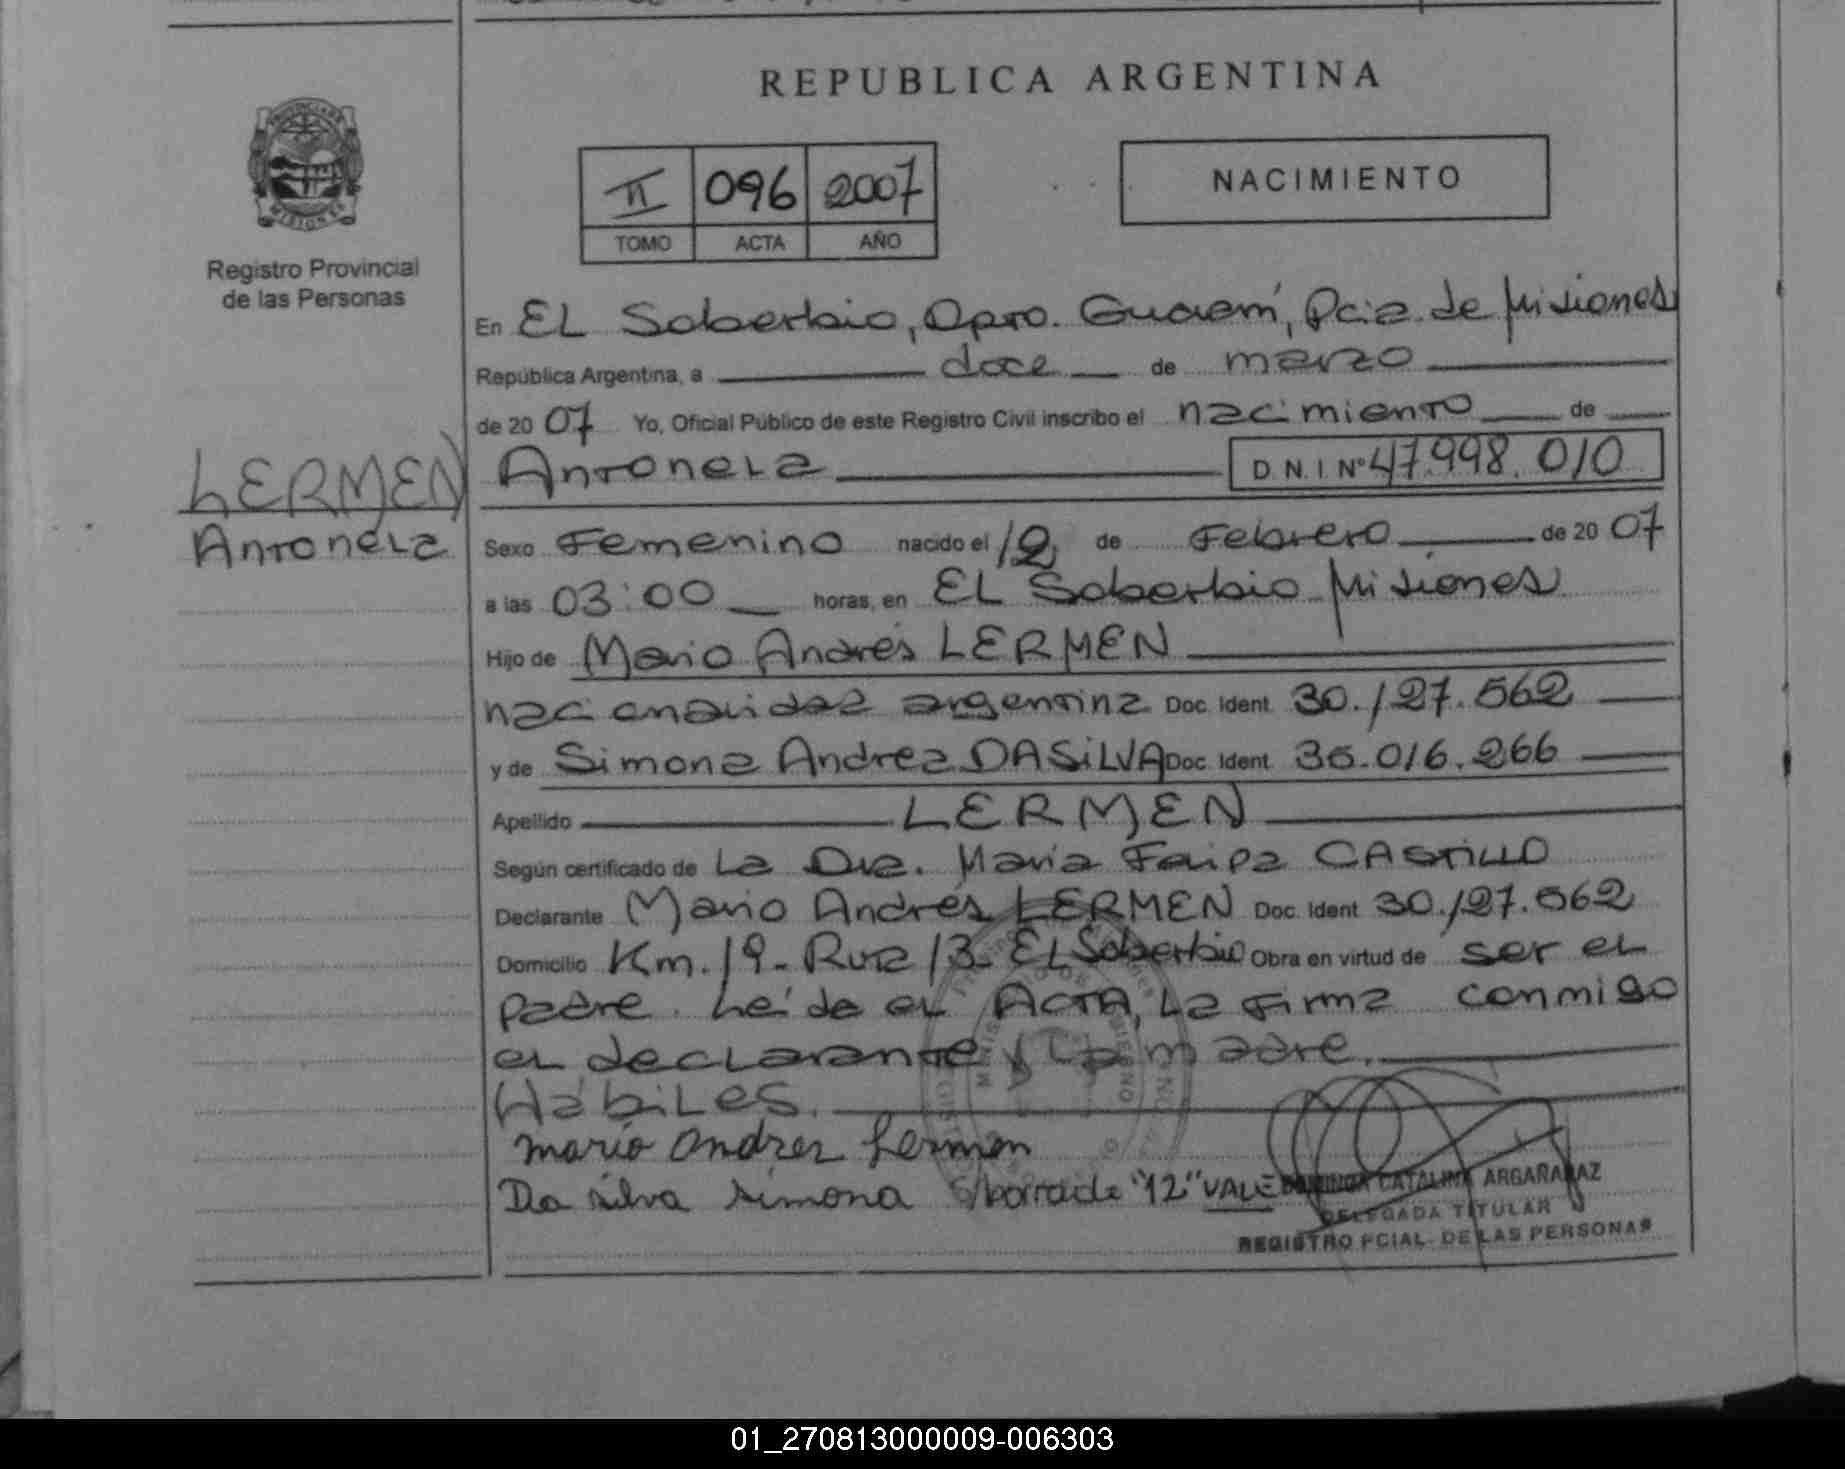 REPUBLICA ARGENTINA
PROVINCIA DE
MISIONES
Registro Provincial
de las Personas
II 096 2007
TOMO ACTA AÑO
NACIMIENTO
En EL Soberbio, Dpto. Guaraní, Pcia. de Misiones
República Argentina, a doce de marzo
de 20 07 Yo, Oficial Público de este Registro Civil inscribo el nacimiento de
LERMEN
Antonela
Antonela D.N.I Nº 47.998.010
Sexo Femenino nacido el 12 de Febrero de 20 07
a las 03:00 horas, en EL Soberbio Misiones
Hijo de Mario Andrés LERMEN
nacionalidad argentina Doc. Ident. 30.127.562
y de Simona Andrea DASILVA Doc. Ident. 35.016.266
Apellido LERMEN
Según certificado de La Dra. María Felipa CASTILLO
Declarante Mario Andrés LERMEN Doc. Ident. 30.127.562
Domicilio Km. 19- Ruta 13- EL Soberbio Obra en virtud de ser el
padre. Leída el ACTA, La firma conmigo
el declarante y La madre.
Hábiles.
mario andres Lermen
Da silva simona S/borrado "12" VALE
CATALINA ARGARAÑAZ
DELEGADA TITULAR
REGISTRO PCIAL. DE LAS PERSONAS
01_270813000009-006303